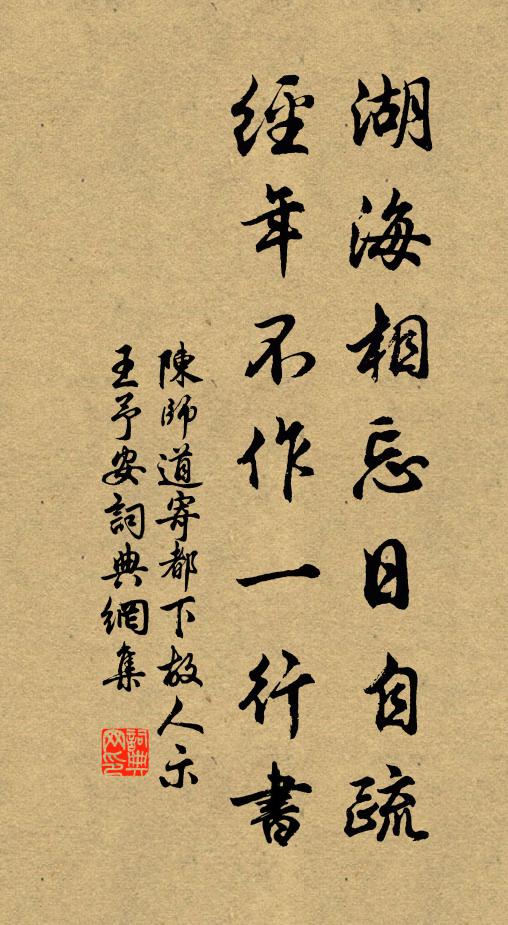 湖海相忘日自疏
經年不作一行書
陳師道寄都下故人示
王予安詞典網集
詞典
网印